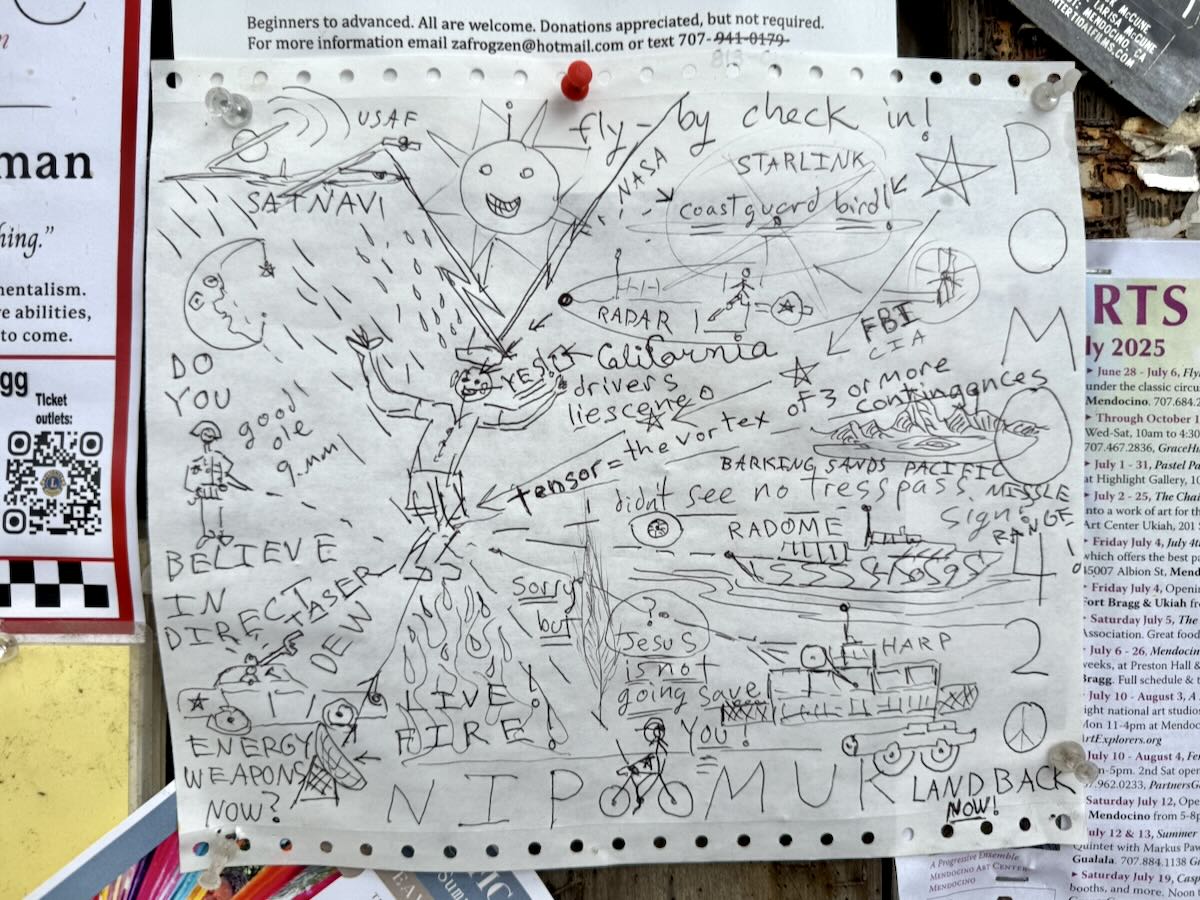 Beginners to advanced. All are welcome. Donations appreciated, but not required.
For more information email zafrogzen@hotmail.com or text 707-941-0179-
McCUNE
LARISA McCUNE
MENDOCINO, CA
man
hing.”
mentalism.
e abilities,
to come.
gg
TIcket
outlets:
USAF
SATNAVI
i
fly-by check in!
NASA
STARLINK
coast guard bird!
RADAR
FBI
CIA
YES!!
California
drivers
liesceneo
of 3 or more
contingances
tensor = the vortex
BARKING SANDS PACIFIC
MISSLE
RANGE
didn't see no tresspass
signs
RADOME
DO
YOU
good
ole
9.mm
BELIEVE
IN
DIRECT
TASER
DEW
ENERGY
WEAPONS
NOW?
LIVE
FIRE!
sorry
but
?
Jesus
is not
going save
You!
HARP
POMO
4
2
NIP MUK
LAND BACK
NOW!
RTS
ly 2025
June 28 - July 6,
under the classic
Mendocino. 707.684.2
Through October 1
Wed-Sat, 10am to 4:30
707.467.2836,
July 1 - 31, Pastel
at Highlight Gallery,
July 2 - 25, The
into a work of art for
Art Center Ukiah, 201
Friday July 4, July 4th
which offers the best
45007 Albion St,
Friday July 4,
Fort Bragg & Ukiah
Saturday July 5, The
Association. Great food
July 6 - 26,
weeks, at Preston Hall &
Bragg. Full schedule &
July 10 - August 3, A
Mon 11-4pm at
ArtExplorers.org
July 10 - August 4,
2nd Sat
Saturday July 12,
Mendocino from 5-8p
July 12 & 13, Summer
Quintet with Markus
Gualala. 707.884.1138
Saturday July 19,
booths, and more. Noon
A Progressive Ensemble
Mendocino Art Center
Mendocino